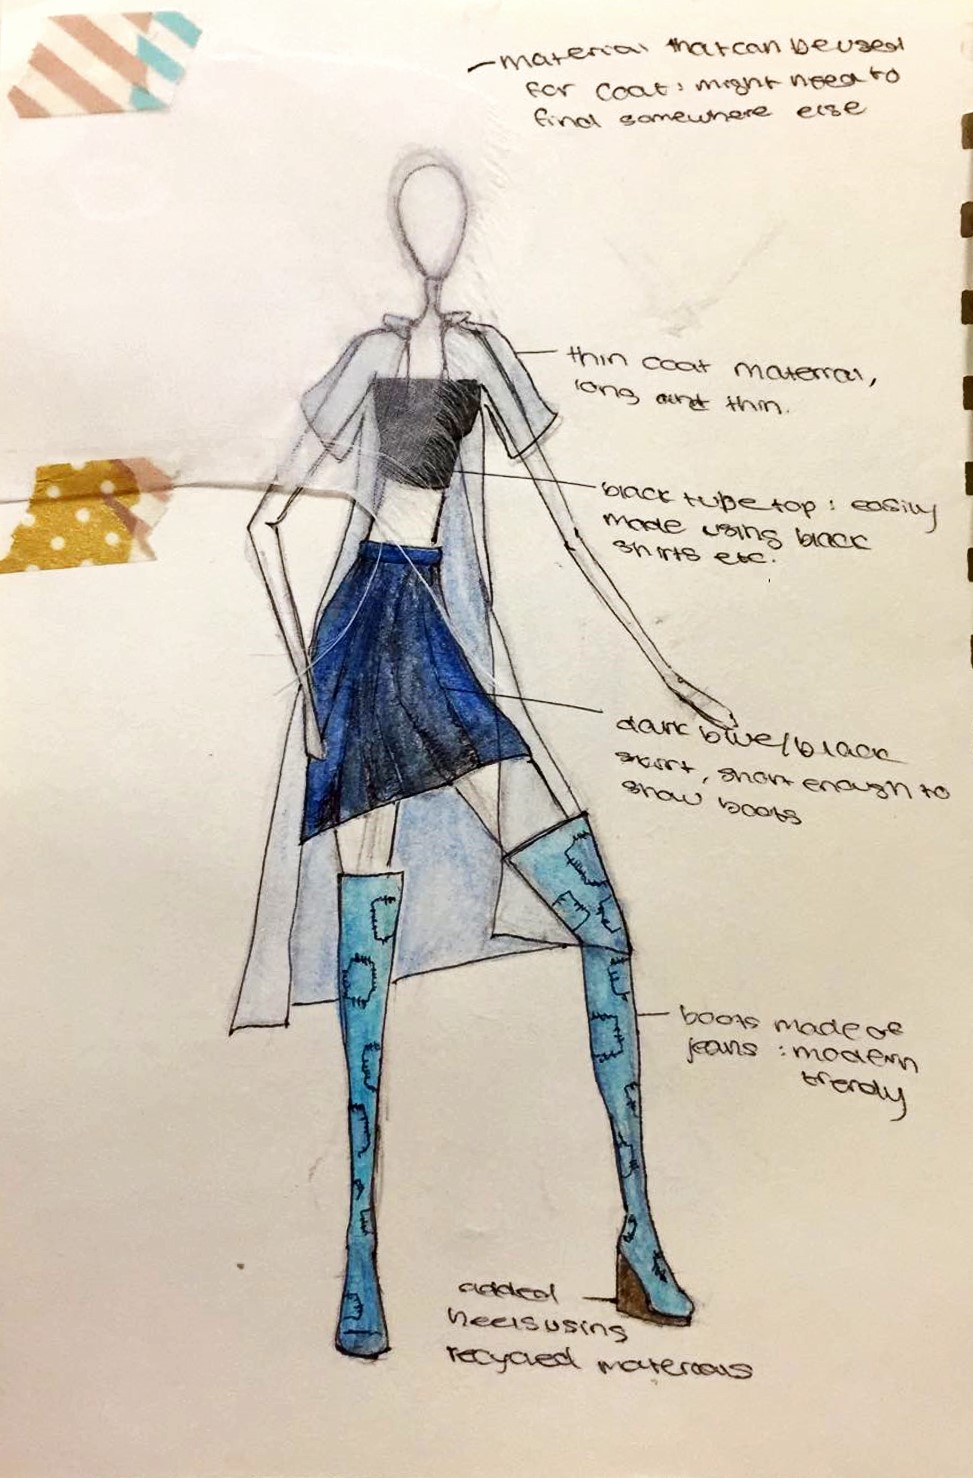 - material that can be used
for coat: might need to
find somewhere else
thin coat material,
long and thin.
black tube top : easily
made using black
shirts etc.
dark blue/black
skirt, short enough to
show boots
boots made of
jeans : modern
trendy
added
heels using
recycled materials